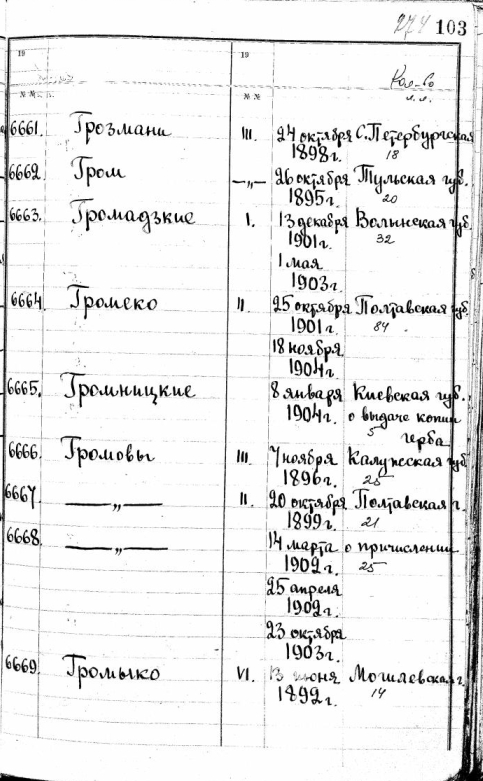 274 103
19 19
Кол-во
л.л.
№№ №№
6661. Грозмани III. 24 октября С.Петербургская
1898г. 18
6662. Гром —„— 26 октября Тульская губ.
1895г. 20
6663. Громадзкие I. 13 декабря Волынская губ.
1901г. 32
1 мая
1903г.
6664. Громеко II. 25 октября Полтавская губ.
1901г. 84
18 ноября
1904г.
6665. Громницкие 8 января Киевская губ.
1904г. о выдаче копии
5 герба
6666. Громовы III. 7 ноября Калужская губ.
1896г. 25
6667 —„— II. 20 октября Полтавская г.
1899г. 21
6668. —„— 14 марта о причислении
1902г. 25
25 апреля
1902г.
23 октября
1903г.
6669. Громыко VI. 13 июня Могилевская г.
1892г. 14